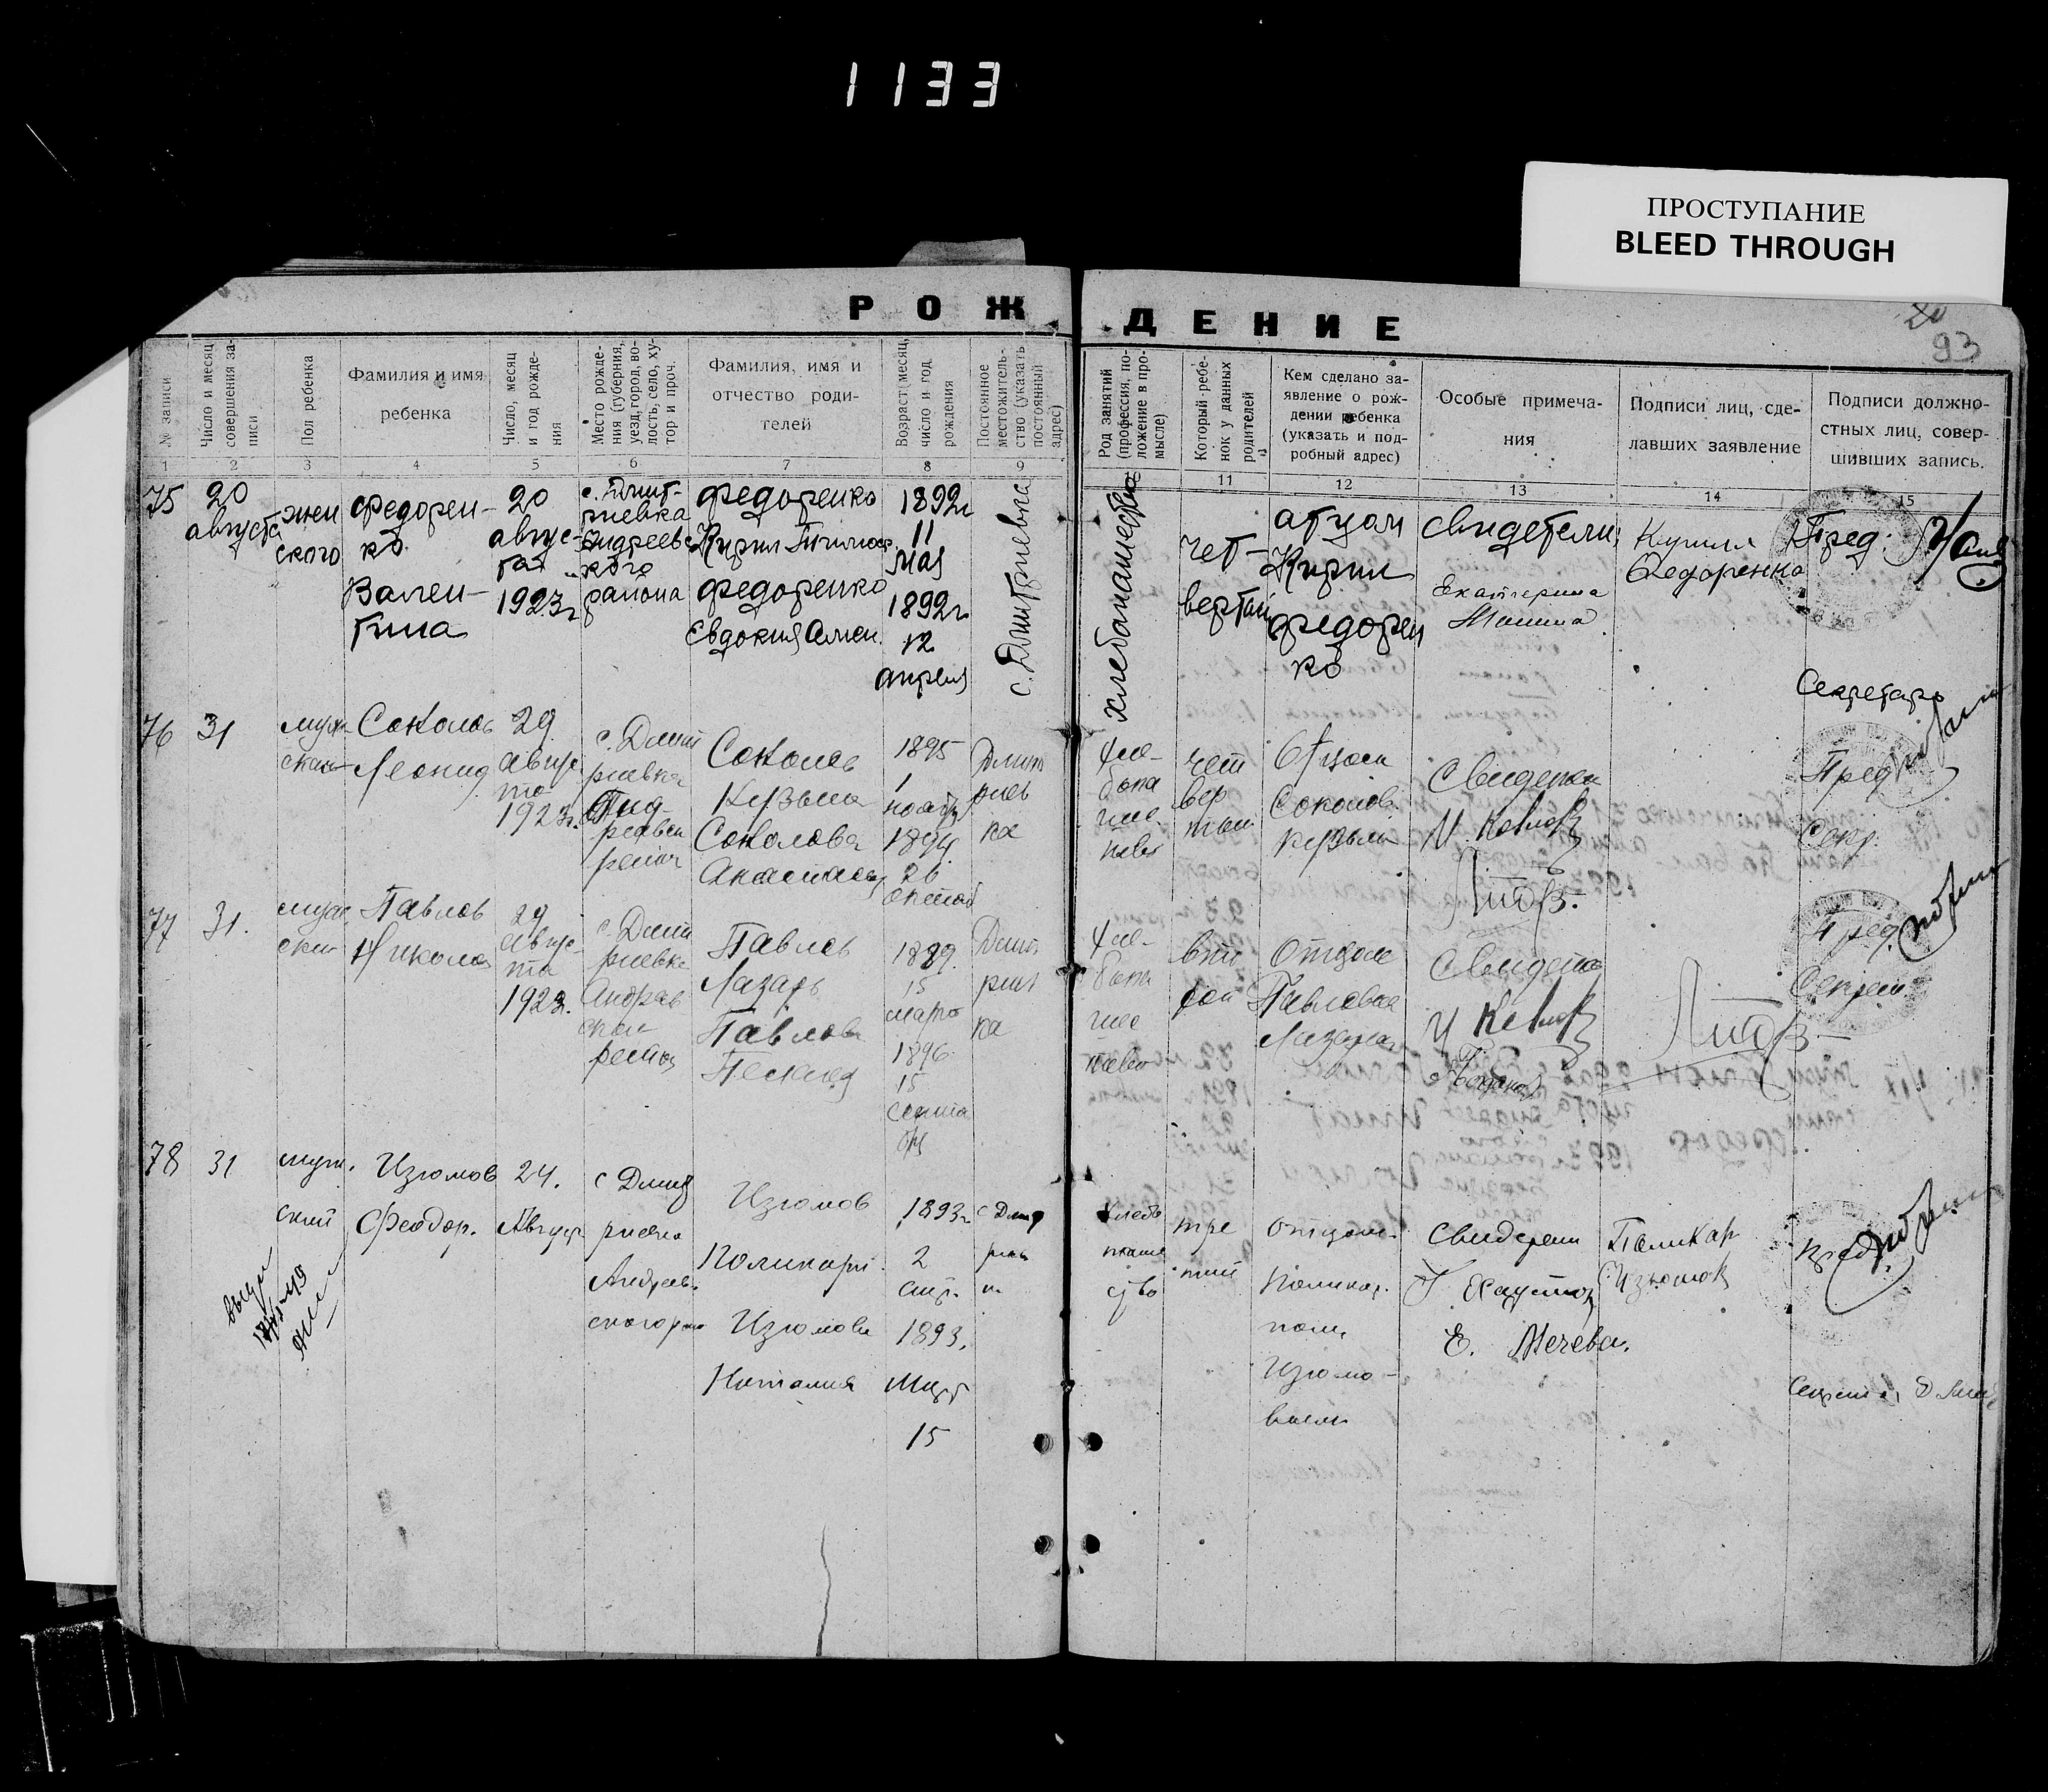 1133
ПРОСТУПАНИЕ
BLEED THROUGH
РОЖДЕНИЕ
93
№ записи
Число и месяц совершения записи
Пол ребенка
Фамилия и имя
ребенка
Число, месяц
и год рожде-
ния
Место рожде-
ния (губерния,
уезд, город, во-
лость, село, ху-
тор и проч.
Фамилия, имя и
отчество роди-
телей
Возраст, месяц,
число и год
рождения
Постоянное
местожитель-
ство (указать
постоянный
адрес)
Род занятий
(профессия, по-
ложение в про-
мысле)
Который ребе-
нок у данных
родителей
Кем сделано за-
явление о рож-
дении ребенка
(указать и под-
робный адрес)
Особые примеча-
ния
Подписи лиц, сде-
лавших заявление
Подписи должно-
стных лиц, совер-
шивших запись.
1 2 3 4 5 6 7 8 9 11 12 13 14 15
75
20
августа
жен
ского
Федорен-
ко
Вален-
тина
20
авгус-
та
1923г
с. Дмит-
риевка
Андреевс
кого
района
Федоренко
Кирил Тимоф.
Федоренко
Евдокия Семен.
1892г
11
мая
1892г
12
апреля
с. Дмитриевка
хлебопашество
чет-
вертый
отцом
Кирил
Федорен
ко
свидетели:
Екатерина
Кирилл
Федоренко
Пред.
Секретарь
76
31
муж-
ской
Соколов
Леонид
29
авгус
та
1923г.
с. Дмит
риевка
район
Соколов
Кузьма
Соколова
Анастасия
1895
1
ноября
1894
26
октяб
Дмит
риев
ка
хле-
бопа
шес
чет
вер
тый
Отцом
Соколов
Кузьма
Свидетели
Пред
Секр.
77
31.
муж
ской
Павлов
Николай
29
Авгус-
та
1923.
с. Дмит
риевка
Андреев
ской
район
Павлов
Лазарь
Павлова
1889
15
марта
1896
15
сентя
бря
Дмит
риев
ка
хле-
бопа
шес
вто
рой
Отцом
Павловым
Лазарем
Свидетели
Пред.
Секрет.
78
31
муж.
ской
Изюмов
Феодор.
24.
Август
с Дмит
риевка
Андреев.
ского рай
Изюмов
Поликарп.
Изюмова
Наталия
1893г
2
апр.
1893.
Март
15
с Дмит
риев
к.
хлебо
паше
ство
тре
тий
отцом.
Поликар.
пом
Изюмо-
вым
Свидетели
Е.
Поликар
Изюмов
Пред.